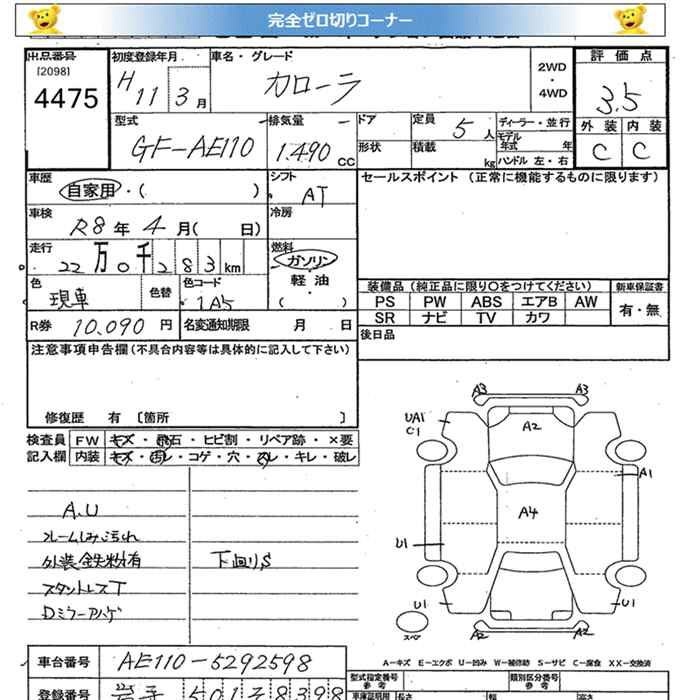 完全ゼロ切りコーナー
出品番号 初度登録年月 車名・グレード 評価点
[2098] H 11 3月 カローラ 2WD・4WD 3.5
4475
型式 排気量 ドア 定員 ディーラー・並行 外装 内装
GF-AE110 1.490 CC 5人 モデル年式 年 C C
形状 積載 kg ハンドル 左・右
車歴 シフト セールスポイント (正常に機能するものに限ります)
自家用・( ) AT
車検 冷房
R8年4月( 日)
走行 燃料
22万0千283km ガソリン
軽油
( )
色 色替 色コード
現車 1A5
装備品 (純正品に限り○をつけてください) 新車保証書
PS PW ABS エアB AW 有・無
SR ナビ TV カワ
R券 10.090円 名変通知期限 月 日
後日品
注意事項申告欄(不具合内容等は具体的に記入して下さい)
修復歴 有 [箇所 ]
検査員 FW キズ・飛石・ヒビ割・リペア跡・×要
記入欄 内装 キズ・汚レ・コゲ・穴・スレ・キレ・破レ
A.U
フレームしみ汚れ
外装鉄粉有 下回りS
スタントレスT
Dミラーアハゲ
A3 A3
UA1 A2
C1
A1
A4
U1
U1 U1
スペア A2 A2
A-キズ E-エクボ U-凹み W-補修跡 S-サビ C-腐食 XX-交換済
車台番号 AE110-5292598
型式指定番号 類別区分番号
参考 参考
登録番号 岩手 501 8398
車庫証明用 長さ 幅 高さ